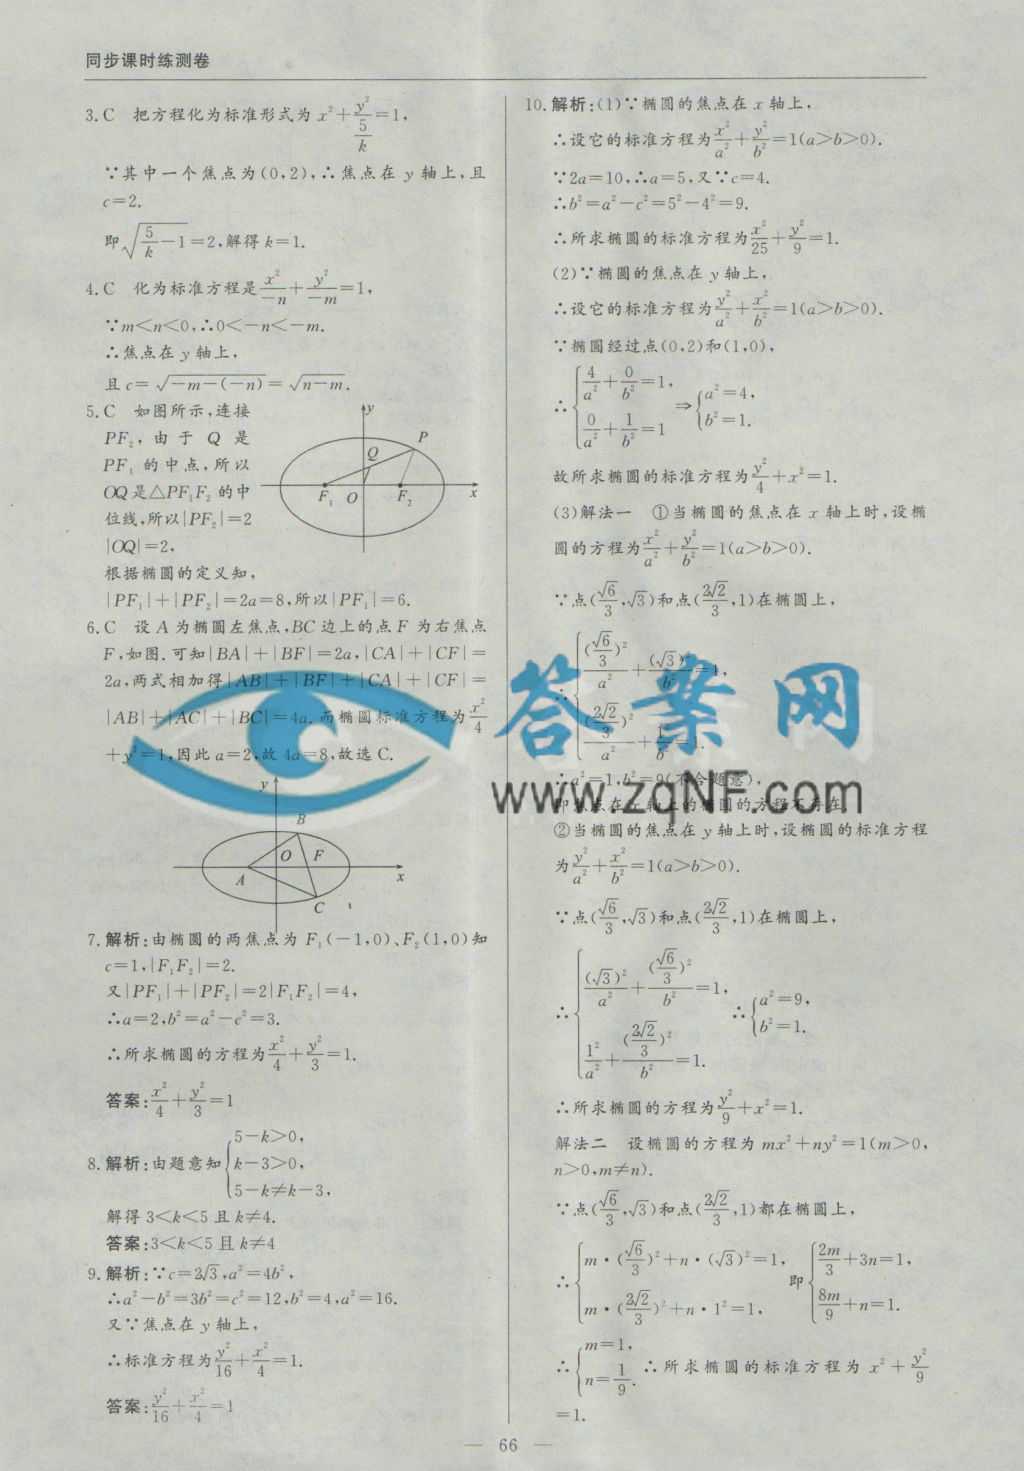 同步课时练测卷
3. C 把方程化为标准形式为 x²+y²/(5/k)=1,
∵其中一个焦点为(0,2),∴焦点在 y 轴上,且
c=2.
即√(5/k−1)=2,解得 k=1.
4. C 化为标准方程是 x²/−n+y²/−m=1,
∵m<n<0,∴0<−n<−m.
∴焦点在 y 轴上,
且 c=√(−m−(−n))=√(n−m).
5. C 如图所示,连接
PF₂,由于 Q 是
PF₁ 的中点,所以
OQ是△PF₁F₂ 的中
位线,所以|PF₂|=2
|OQ|=2,
根据椭圆的定义知,
|PF₁|+|PF₂|=2a=8,所以|PF₁|=6.
y
P
Q
F₁ O F₂ x
6. C 设 A 为椭圆左焦点,BC 边上的点 F 为右焦点
F,如图.可知|BA|+|BF|=2a,|CA|+|CF|=
2a,两式相加得|AB|+|BF|+|CA|+|CF|=
|AB|+|AC|+|BC|=4a.而椭圆标准方程为 x²/4
+y²=1,因此 a=2,故 4a=8,故选 C.
y
B
O F
A x
C
7. 解析:由椭圆的两焦点为 F₁(−1,0)、F₂(1,0)知
c=1,|F₁F₂|=2.
又|PF₁|+|PF₂|=2|F₁F₂|=4,
∴a=2,b²=a²−c²=3.
∴所求椭圆的方程为 x²/4+y²/3=1.
答案:x²/4+y²/3=1
8. 解析:由题意知{5−k>0,
k−3>0,
5−k≠k−3,
解得 3<k<5 且 k≠4.
答案:3<k<5 且 k≠4
9. 解析:∵c=2√3,a²=4b²,
∴a²−b²=3b²=c²=12,b²=4,a²=16.
又∵焦点在 y 轴上,
∴标准方程为 y²/16+x²/4=1.
答案:y²/16+x²/4=1
10. 解析:(1)∵椭圆的焦点在 x 轴上,
∴设它的标准方程为 x²/a²+y²/b²=1(a>b>0).
∵2a=10,∴a=5,又∵c=4.
∴b²=a²−c²=5²−4²=9.
∴所求椭圆的标准方程为 x²/25+y²/9=1.
(2)∵椭圆的焦点在 y 轴上,
∴设它的标准方程为 y²/a²+x²/b²=1(a>b>0).
∵椭圆经过点(0,2)和(1,0),
∴{4/a²+0/b²=1,
0/a²+1/b²=1 ⇒{a²=4,
b²=1.
故所求椭圆的标准方程为 y²/4+x²=1.
(3)解法一 ①当椭圆的焦点在 x 轴上时,设椭
圆的方程为 x²/a²+y²/b²=1(a>b>0).
∵点(√6/3,√3)和点(2√2/3,1)在椭圆上,
∴{(√6/3)²/a²+(√3)²/b²=1,
(2√2/3)²/a²+1²/b²=1.
∴a²=1,b²=9(不合题意),
即焦点在 x 轴上的椭圆的方程不存在.
②当椭圆的焦点在 y 轴上时,设椭圆的标准方程
为 y²/a²+x²/b²=1(a>b>0).
∵点(√6/3,√3)和点(2√2/3,1)在椭圆上,
∴{(√3)²/a²+(√6/3)²/b²=1,
1²/a²+(2√2/3)²/b²=1. ∴{a²=9,
b²=1.
∴所求椭圆的方程为 y²/9+x²=1.
解法二 设椭圆的方程为 mx²+ny²=1(m>0,
n>0,m≠n).
∵点(√6/3,√3)和点(2√2/3,1)都在椭圆上,
∴{m·(√6/3)²+n·(√3)²=1,
m·(2√2/3)²+n·1²=1, 即{2m/3+3n=1,
8m/9+n=1.
∴{m=1,
n=1/9. ∴所求椭圆的标准方程为 x²+y²/9
=1.
答案网
www.zqNF.com
— 66 —